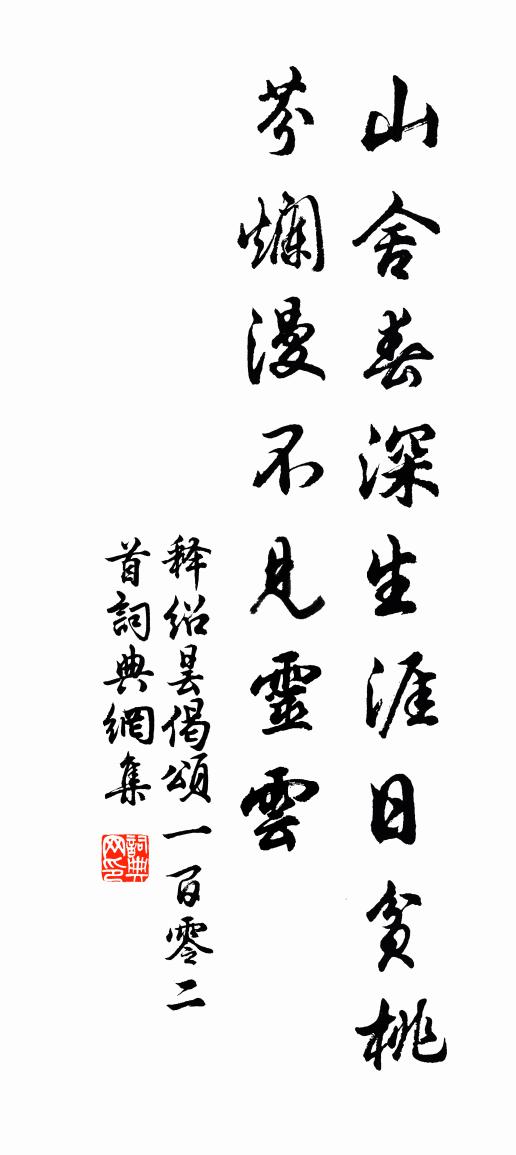 山舍春深生涯日贫桃
芬爛漫不見靈雲
释绍昙偈頌一百零二
首詞典網集
詞典网印